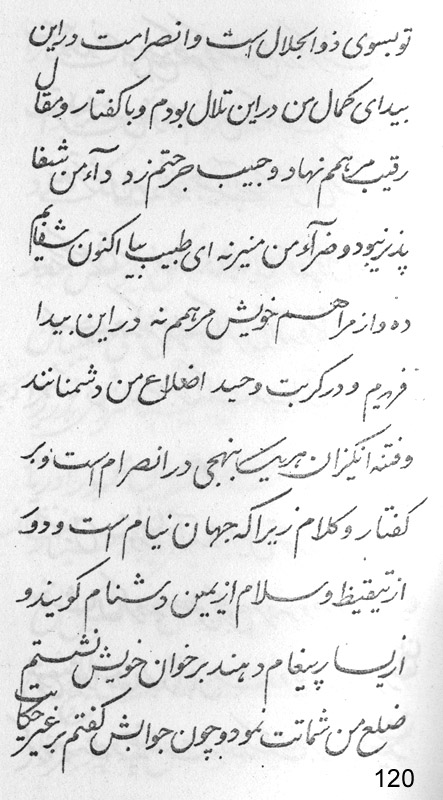 تو بسوی ذو الجلال است و انصرامت در این
بیدای کمال من در این تلال بودم و با گفتار و مقال
رقیب مرهمم نهاد و حبیب جرحتم زد دآء من شفا
پذیر نبود و ضرآء من منیر نه ای طبیب بیا اکنون شفایم
ده و از مراهم خویش مرهمم نه در این بیدا
فریدم و در کربت وحید اضلاع من دشمنانند
و فتنه انگیزان هریک بنهجی در انصرام است و بر
گفتار و کلام زیرا که جهان نیام است و دور
از تیقیظ و سلام از یمین دشنام گویند و
از یسار پیغام دهند بر خوان خویش نشستم
ضلع من شماتت نمود و چون جوابش گفتم بر غیر حکایت
120